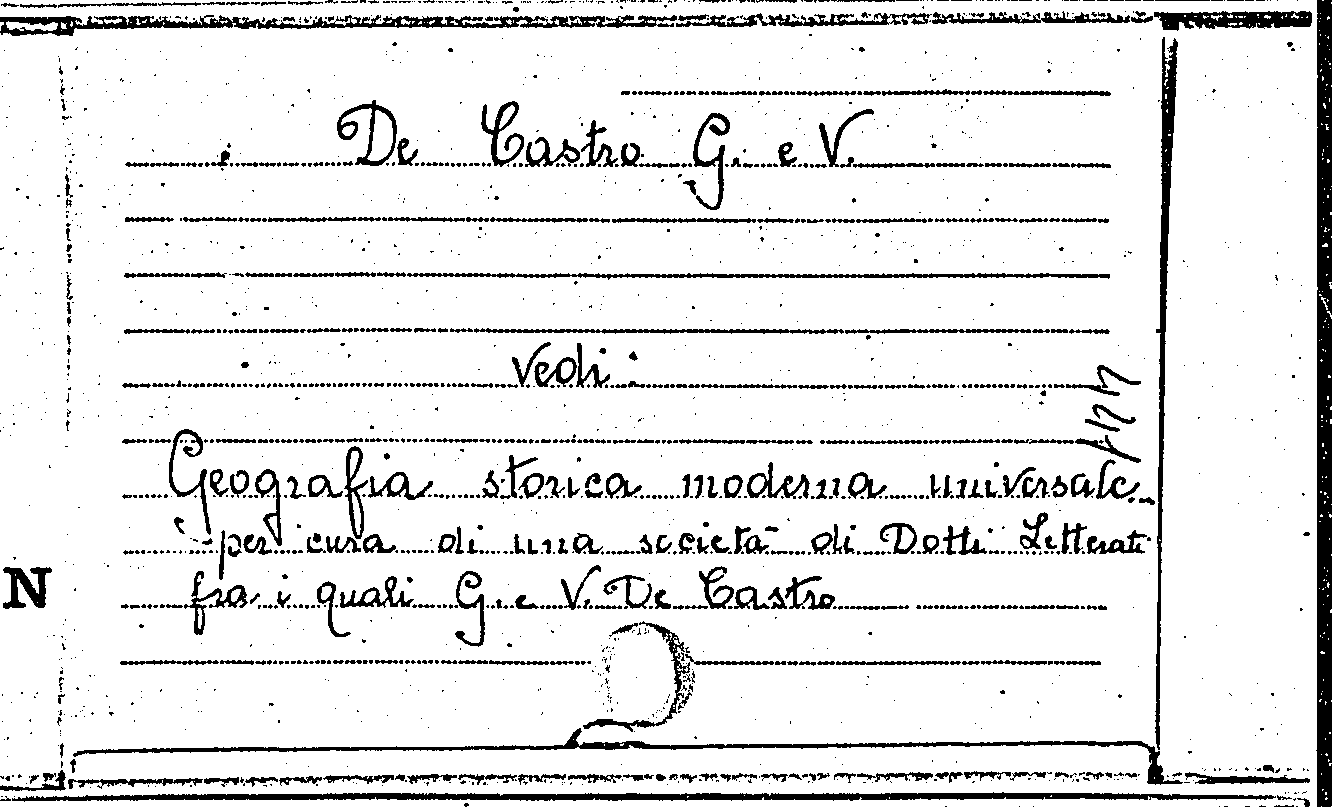 De Castro G. e V.
Vedi:
Geografia storica moderna universale
per cura di una società di Dotti Letterati
fra i quali G. e V. De Castro
N